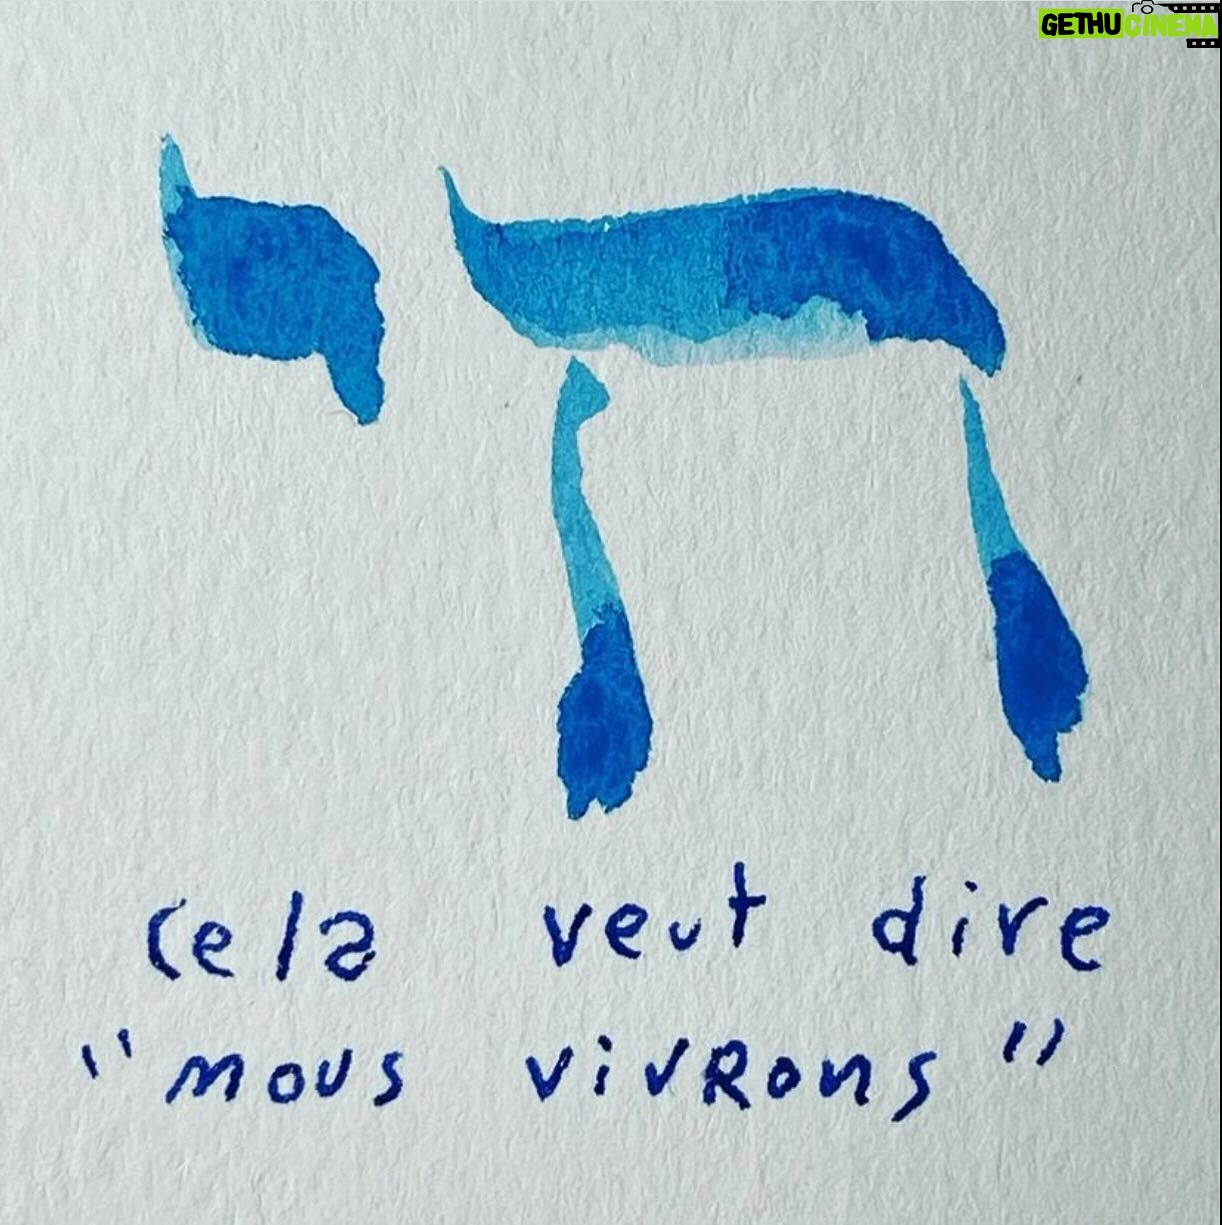 GETHUCINEMA
חי
cela veut dire
"nous vivRons"